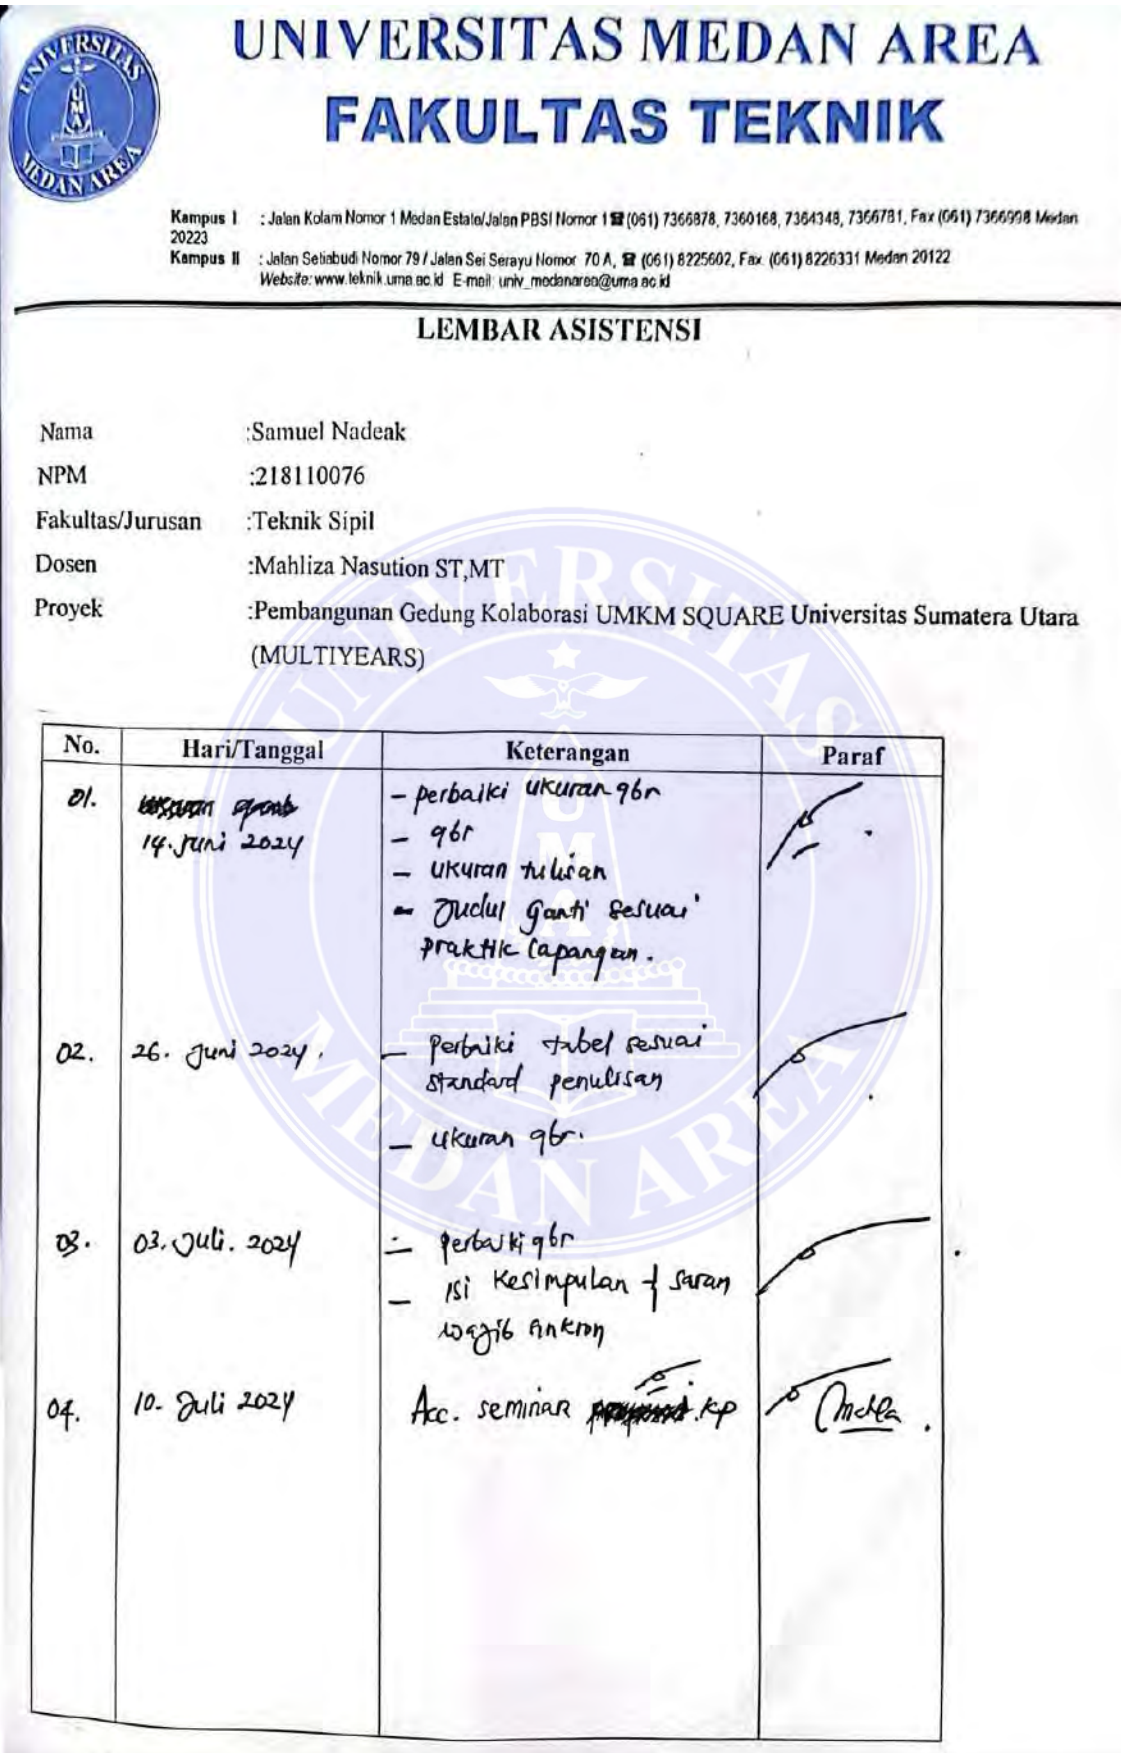 UNIVERSITAS MEDAN AREA
FAKULTAS TEKNIK
UNIVERSITAS
UMA
MEDAN AREA
Kampus I : Jalan Kolam Nomor 1 Medan Estate/Jalan PBSI Nomor 1 ☎ (061) 7366878, 7360168, 7364348, 7366781, Fax (061) 7366998 Medan
20223
Kampus II : Jalan Setiabudi Nomor 79 / Jalan Sei Serayu Nomor 70 A, ☎ (061) 8225602, Fax. (061) 8226331 Medan 20122
Website: www.teknik.uma.ac.id E-mail: univ_medanarea@uma.ac.id
LEMBAR ASISTENSI
Nama :Samuel Nadeak
NPM :218110076
Fakultas/Jurusan :Teknik Sipil
Dosen :Mahliza Nasution ST,MT
Proyek :Pembangunan Gedung Kolaborasi UMKM SQUARE Universitas Sumatera Utara
(MULTIYEARS)
UNIVERSITAS
UMA
MEDAN AREA
No. Hari/Tanggal Keterangan Paraf
01. - perbaiki ukuran gbr
14. Juni 2024 - gbr
- ukuran tulisan
- Judul ganti sesuai
praktik lapangan.
02. 26. Juni 2024. - Perbaiki tabel sesuai
standard penulisan
- ukuran gbr.
03. 03. Juli. 2024 - perbaiki gbr
- isi Kesimpulan & saran
wajib
04. 10. Juli 2024 Acc. seminar KP